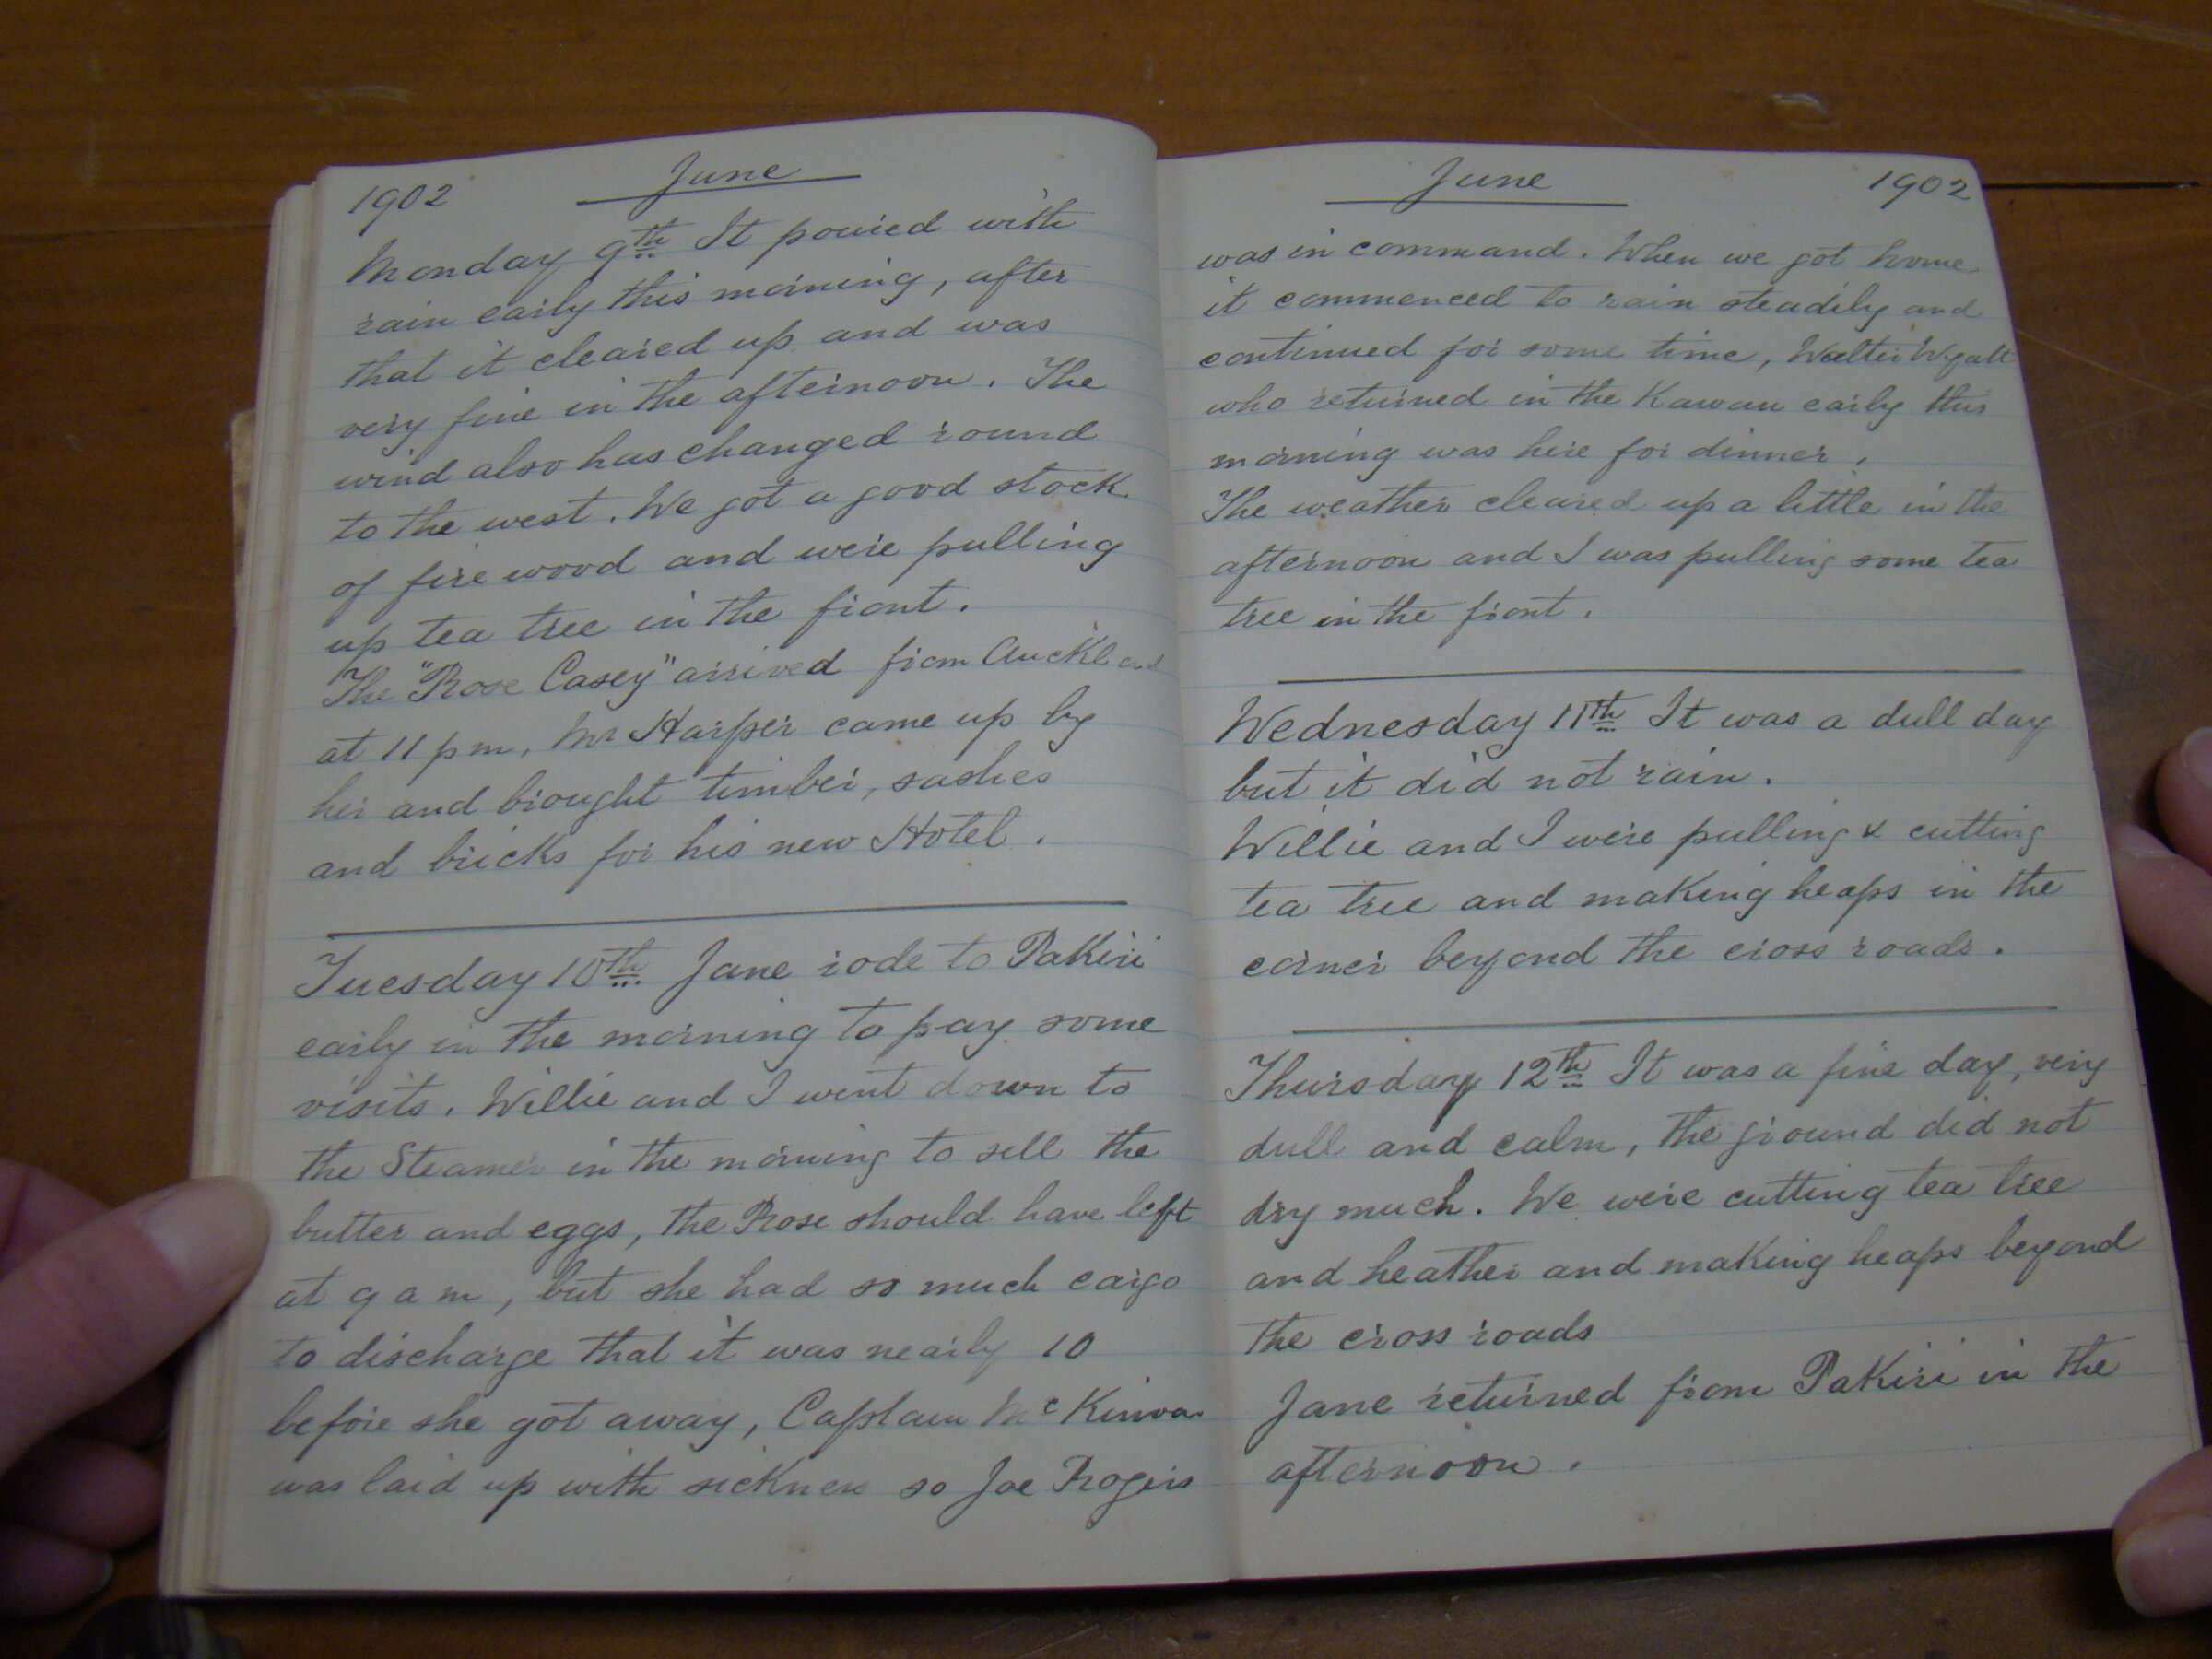 1902 June
Monday 9th It poured with
rain early this morning, after
that it cleared up and was
very fine in the afternoon. The
wind also has changed round
to the west. We got a good stock
of fire wood and were pulling
up tea tree in the front.
The "Rose Casey" arrived from Auckland
at 11 pm, Mr Harper came up by
her and brought timber, sashes
and bricks for his new Hotel.
Tuesday 10th Jane rode to Pakiri
early in the morning to pay some
visits. Willie and I went down to
the Steamer in the morning to sell the
butter and eggs, the Rose should have left
at 9 a m, but she had so much cargo
to discharge that it was nearly 10
before she got away, Captain
was laid up with sickness so Joe Rogers
June 1902
was in command. When we got home
it commenced to rain steadily and
continued for some time, Walter Wyatt
who returned in the Kawau early this
morning was here for dinner.
The weather cleared up a little in the
afternoon and I was pulling some tea
tree in the front.
Wednesday 11th It was a dull day
but it did not rain.
Willie and I were pulling & cutting
tea tree and making heaps in the
corner beyond the cross roads.
Thursday 12th It was a fine day, very
dull and calm, the ground did not
dry much. We were cutting tea tree
and heather and making heaps beyond
the cross roads
Jane returned from Pakiri in the
afternoon.